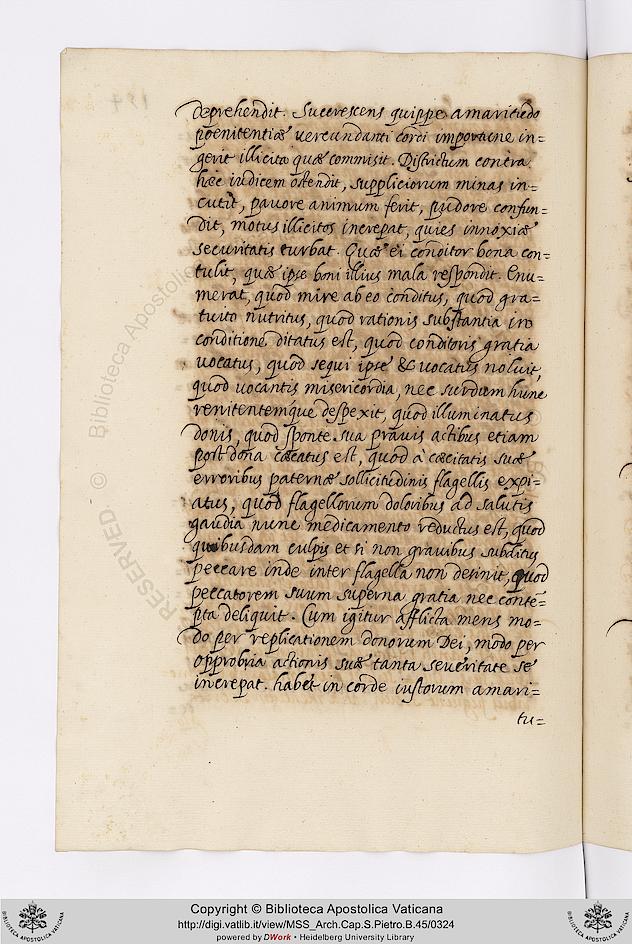 deprehendit. Succrescens quippe amaritudo
poenitentiæ uerecundanti cordi importune in=
gerit illicita quæ commisit. Districtum contra
hæc iudicem ostendit, suppliciorum minas in=
cutit, pauore animum ferit, pudore confun=
dit, motus illicitos increpat, quies innoxiæ
securitatis turbat. Quæ ei conditor bona con=
tulit, quæ ipse boni illius mala respondit. Enu=
merat, quod mire ab eo conditus, quod gra=
tuito nutritus, quod rationis substantia in
conditione ditatus est, quod conditoris gratia
uocatus, quod sequi ipse & uocatus noluit,
quod uocantis misericordia, nec surdum hunc
renitentemque despexit, quod illuminatus
donis, quod sponte sua prauis actibus etiam
post dona cæcatus est, quod à cæcitatis suæ
erroribus paternæ sollicitudinis flagellis expi=
atus, quod flagellorum doloribus ad salutis
gaudia nunc medicamento reductus est, quod
quibusdam culpis et si non grauibus subditus
peccare inde inter flagella non desinit, quod
peccatorem suum superna gratia nec contē=
pta deliquit. Cum igitur afflicta mens mo=
do per replicationem donorum Dei, modo per
opprobria actionis suæ tanta seueritate se
increpat. habet in corde iustorum amari=
tu=
RESERVED © Biblioteca Apostolic
Copyright © Biblioteca Apostolica Vaticana
http://digi.vatlib.it/view/MSS_Arch.Cap.S.Pietro.B.45/0324
powered by DWork • Heidelberg University Library